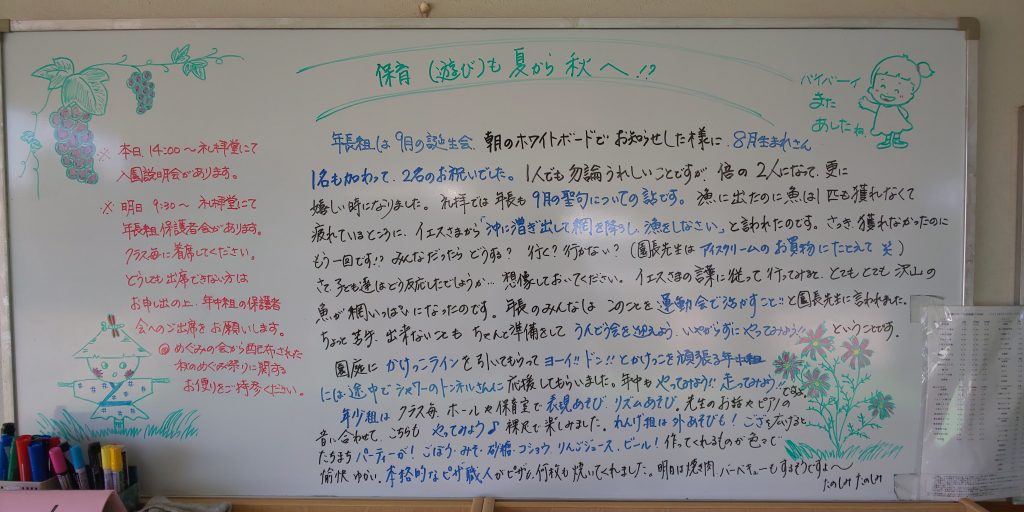 保育(遊び)も夏から秋へ!?
バイバーイ
また
あしたね、
※ 本日 14:00〜礼拝堂にて
入園説明会があります。
※ 明日 9:30〜 礼拝堂にて
年長組保護者会があります。
クラス毎に着席してください。
どうしても出席できない方は
お申し出の上、年中組の保護者
会へのご出席をお願いします。
@ めぐみの会から配布された
秋のめぐみ祭りに関する
お便りをご持参ください。
年長組は9月の誕生会、朝のホワイトボードでお知らせした様に、8月生まれさん
1名も加わって、2名のお祝いでした。1人でも勿論うれしいことですが、倍の2人になって、更に
嬉しい時になりました。礼拝では年長も9月の聖句についての話です。漁に出たのに魚は1匹も獲れなくて
疲れているところに、イエスさまから「沖に漕ぎ出して網を降ろし、漁をしなさい」と言われたのです。さっき、獲れなかったのに
もう一回です!?みんなだったらどうする?行く?行かない?(園長先生はアイスクリームのお買物にたとえて 笑)
さて、子ども達はどう反応したでしょうか…想像しておいてください。イエスさまの言葉に従って行ってみると、とてもとても沢山の
魚が網いっぱいになったのです。年長のみんなは このことを運動会で活かすこと!!と園長先生に言われました。
ちょっと苦手、出来ないことも ちゃんと準備をして うんどう会を迎えよう、いやがらずに やってみよう!! ということです。
園庭に かけっこラインを引いてもらって ヨーイ!!ドン!!とかけっこを頑張る年中組
には途中でシャワーのトンネルさんに応援してもらいました。年中も やってみよう!!走ってみよう!!ですよ。
年少組は クラス毎、ホールや保育室で表現あそび、リズムあそび。先生のお話やピアノの
音に合わせて、こちらも やってみよう♪ 裸足で楽しみました。れんげ組は外あそびも!ござを広げると
たちまちパーティーが!ごぼう・みそ・砂糖・コショウ、りんごジュース、ビール!作ってくれるものが色々で
愉快 ゆかい。本格的なピザ職人がピザも何枚も焼いてくれました。明日は焼き肉、バーベキューもするそうですよ〜
たのしみ たのしみ